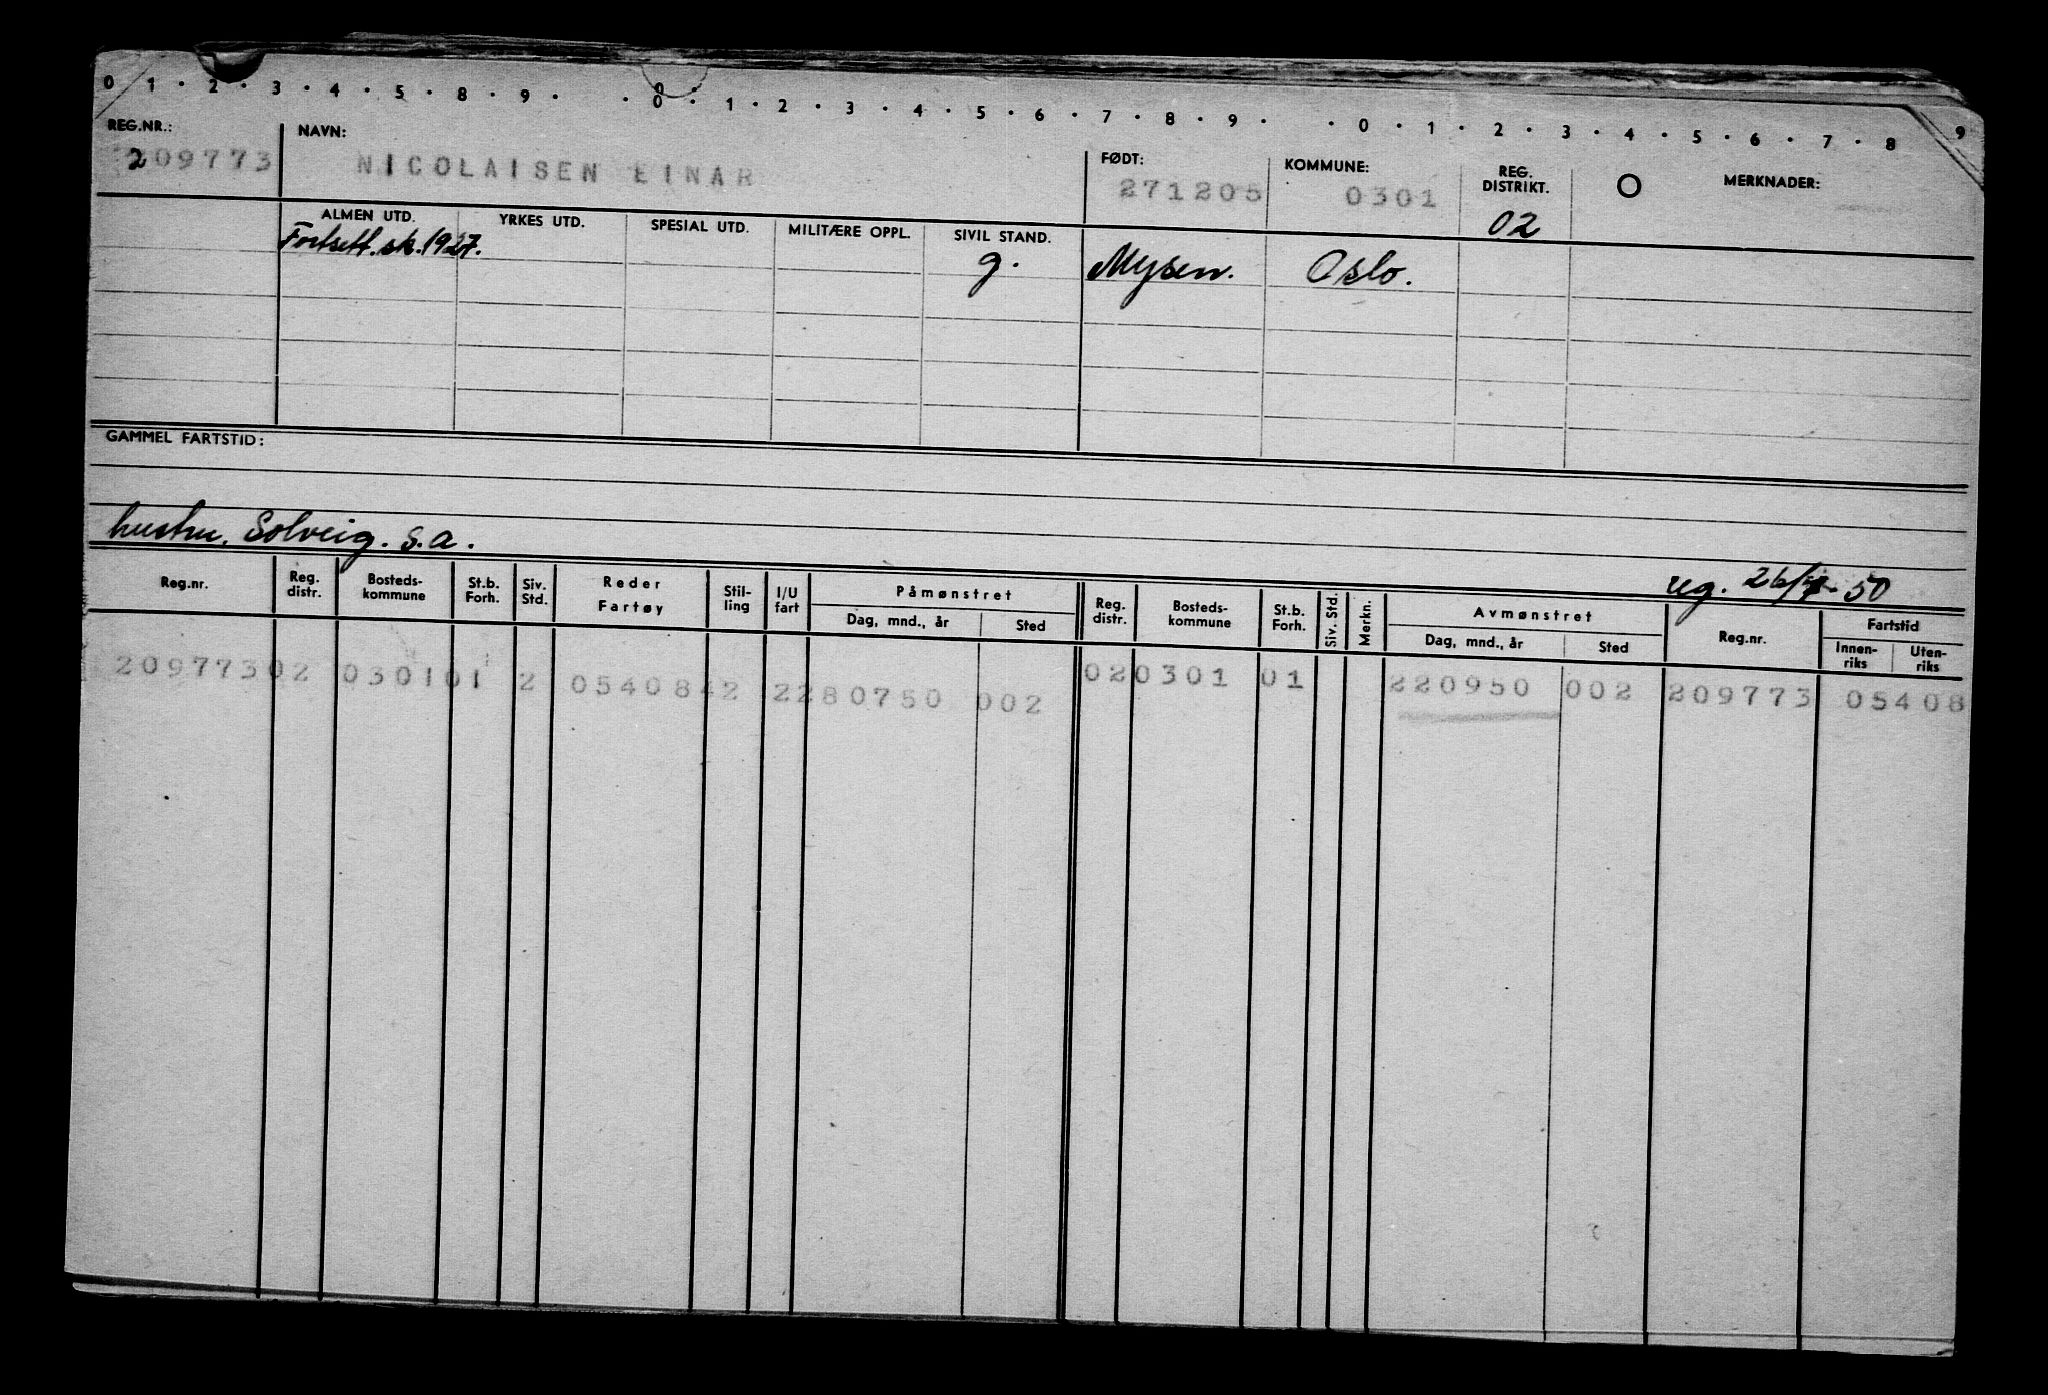 0 1 · 2 · 3 · 4 · 5 · 8 · 9 · · 0 · 1 · 2 · 3 · 4 · 5 · 6 · 7 · 8 · 9 · · 0 · 1 · 2 · 3 · 4 · 5 · 6 · 7 · 8 9
REG.NR.: NAVN: FØDT: KOMMUNE: REG. DISTRIKT. MERKNADER:
209773 NICOLAISEN EINAR 271205 0301 02
ALMEN UTD. YRKES UTD. SPESIAL UTD. MILITÆRE OPPL. SIVIL STAND.
Fortsett. sk. 1927. g. Mysen. Oslo.
GAMMEL FARTSTID:
hustru. Solveig. s.a.
reg. 26/7-50
Reg.nr. Reg. distr. Bosteds-kommune St.b. Forh. Siv. Std. Reder Fartøy Stil-ling I/U fart Påmønstret Reg. distr. Bosteds-kommune St.b. Forh. Siv. Std. Merkn. Avmønstret Reg.nr. Fartstid
Dag, mnd., år Sted Dag, mnd., år Sted Innen-riks Uten-riks
209773 02 0301 01 2 05408 42 2 280750 002 02 0301 01 220950 002 209773 05408